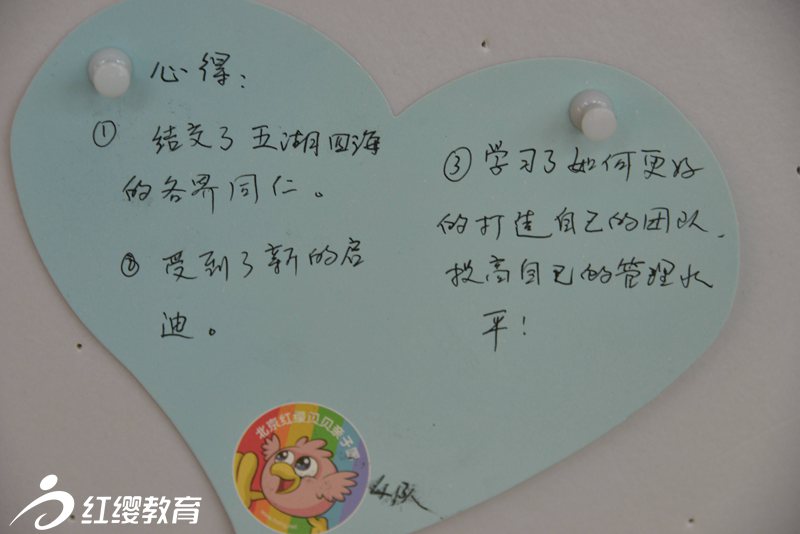 心得：
① 结交了五湖四海
的各界同仁。
② 受到了新的启
迪。
③ 学习了如何更好
的打造自己的团队，
提高自己的管理水
平！
北京红缨贝贝亲子园
4队
红缨教育